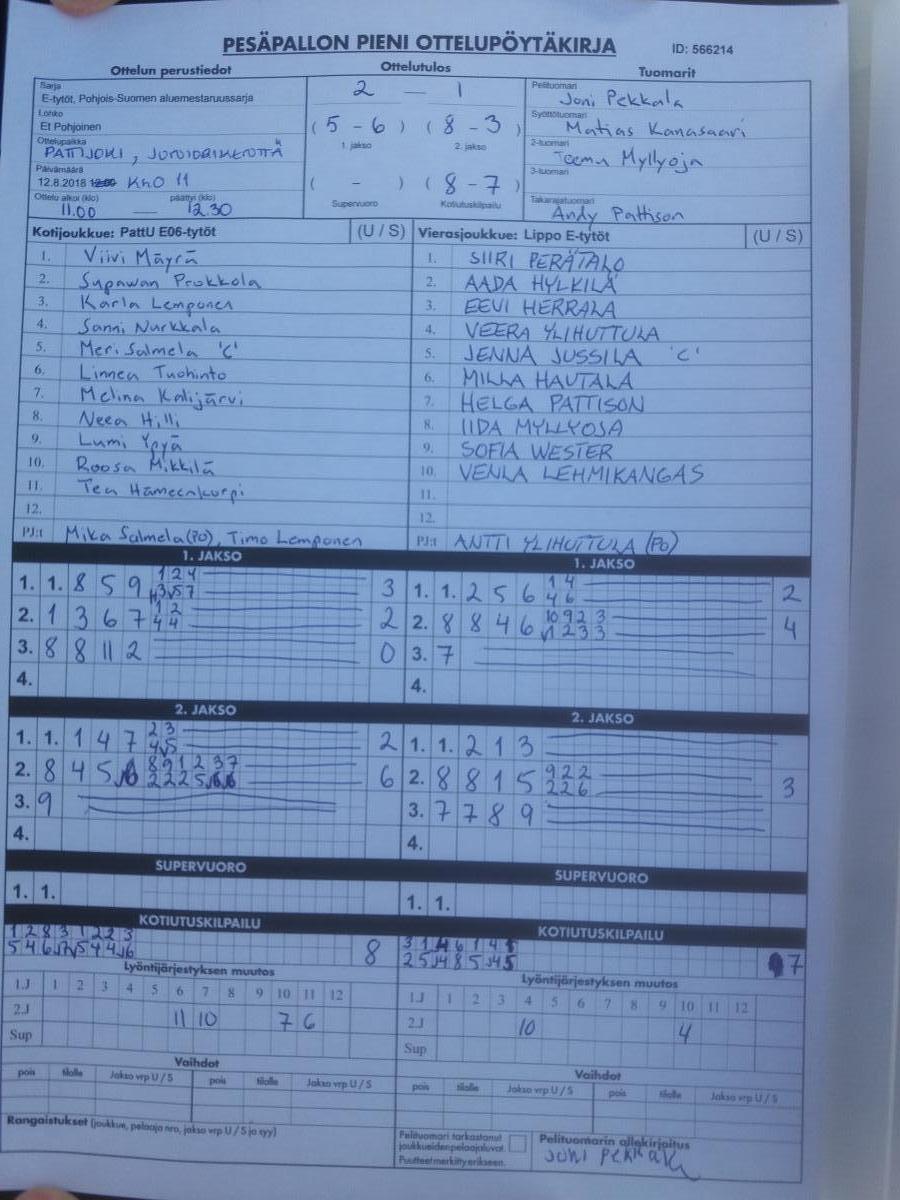 PESÄPALLON PIENI OTTELUPÖYTÄKIRJA ID: 566214
Ottelun perustiedot Ottelutulos Tuomarit
Sarja
E-tytöt, Pohjois-Suomen aluemestaruussarja
Lohko
Et Pohjoinen
Ottelupaikka
PATTIJOKI,
Päivämäärä
12.8.2018 12:00 KLO 11
Ottelu alkoi (klo) päättyi (klo)
11.00 — 12.30
2 — 1
(5 - 6) (8 - 3)
1. jakso 2. jakso
( - ) (8 - 7)
Supervuoro Kotiutuskilpailu
Pelituomari
Joni Pekkala
Syöttötuomari
Matias Kanasaari
2-tuomari
Teemu Myllyoja
3-tuomari
Takarajatuomari
Andy Pattison
Kotijoukkue: PattU E06-tytöt (U / S) Vierasjoukkue: Lippo E-tytöt (U / S)
1. Viivi Mäyrä 1. SIIRI PERÄTALO
2. Supawan Prokkola 2. AADA HYLKILÄ
3. Karla Lemponen 3. EEVI HERRALA
4. Sanni Nurkkala 4. VEERA YLIHUTTULA
5. Meri Salmela 'C' 5. JENNA JUSSILA 'C'
6. Linnea Tuohinto 6. MILLA HAUTALA
7. Melina Kalijärvi 7. HELGA PATTISON
8. Neea Hilli 8. IIDA MYLLYOJA
9. Lumi Ypyä 9. SOFIA WESTER
10. Roosa Mikkilä 10. VENLA LEHMIKANGAS
11. Tea Hämeenkorpi 11.
12. 12.
PJ:t Mika Salmela (PO), Timo Lemponen PJ:t ANTTI YLIHUTTULA (PO)
1. JAKSO 1. JAKSO
1. 1. 8 5 9 1 2 4 3 1. 1. 2 5 6 1 4 2
3 5 7 4 6
2. 1 3 6 7 1 2 2 2. 8 8 4 6 10 9 2 3 4
4 4 1 2 3 3
3. 8 8 11 2 0 3. 7
4. 4.
2. JAKSO 2. JAKSO
1. 1. 1 4 7 2 3 2 1. 1. 2 1 3
4 5
2. 8 4 5 6 8 9 1 2 3 7 6 2. 8 8 1 5 9 2 2 3
2 2 2 5 6 6 2 2 6
3. 9 3. 7 7 8 9
4. 4.
SUPERVUORO SUPERVUORO
1. 1. 1. 1.
KOTIUTUSKILPAILU KOTIUTUSKILPAILU
1 2 8 3 1 2 2 3 8 3 1 4 6 1 4 5 7
5 4 6 7 5 4 4 6 2 5 4 8 5 4 5
Lyöntijärjestyksen muutos Lyöntijärjestyksen muutos
1.J 1 2 3 4 5 6 7 8 9 10 11 12 1.J 1 2 3 4 5 6 7 8 9 10 11 12
2.J 11 10 7 6 2.J 10 4
Sup Sup
Vaihdot Vaihdot
pois tilalle Jakso vrp U / S pois tilalle Jakso vrp U / S pois tilalle Jakso vrp U / S pois tilalle Jakso vrp U / S
Rangaistukset (joukkue, pelaaja nro, jakso vrp U / S ja syy)
Pelituomari tarkastanut
joukkueiden pelaajaluvat.
Puutteet merkitty erikseen.
Pelituomarin allekirjoitus
Joni Pekkala